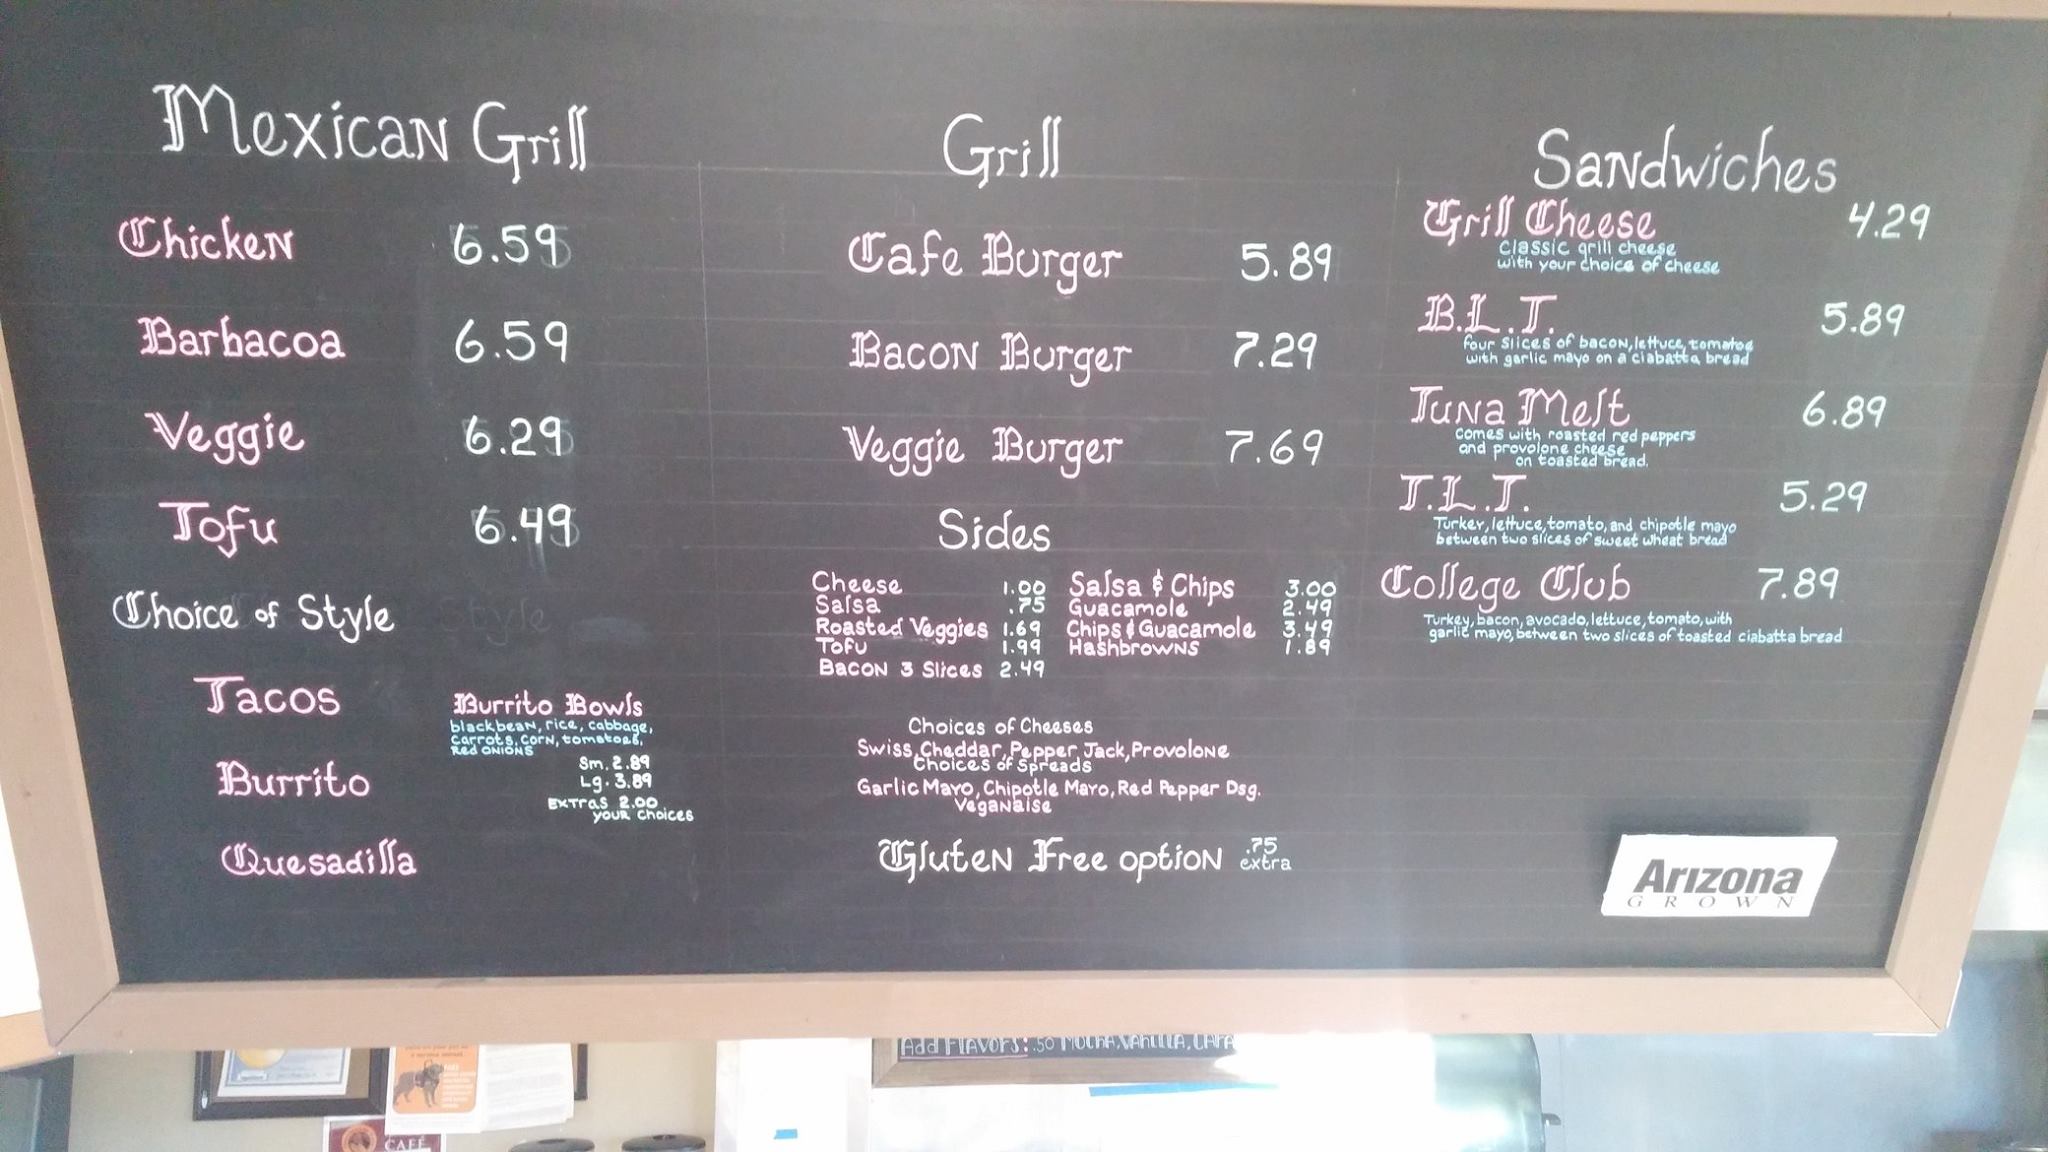 Mexican Grill
Chicken 6.59
Barbacoa 6.59
Veggie 6.29
Tofu 6.49
Choice of Style
Style
Tacos
Burrito
Quesadilla
Burrito Bowls
black bean, rice, cabbage,
carrots, corn, tomatoes,
Red onions
Sm. 2.89
Lg. 3.89
Extras 2.00
your choices
Grill
Cafe Burger 5.89
Bacon Burger 7.29
Veggie Burger 7.69
Sides
Cheese 1.00
Salsa .75
Roasted Veggies 1.69
Tofu 1.99
Bacon 3 Slices 2.49
Salsa & Chips 3.00
Guacamole 2.49
Chips & Guacamole 3.49
Hashbrowns 1.89
Choices of Cheeses
Swiss, Cheddar, Pepper Jack, Provolone
Choices of Spreads
Garlic Mayo, Chipotle Mayo, Red Pepper Dsg.
Veganaise
Gluten Free option .75
extra
Sandwiches
Grill Cheese 4.29
Classic grill cheese
with your choice of cheese
B.L.T. 5.89
four slices of bacon, lettuce, tomatoe
with garlic mayo on a ciabatta bread
Tuna Melt 6.89
comes with roasted red peppers
and provolone cheese
on toasted bread.
T.L.T. 5.29
Turkey, lettuce, tomato, and chipotle mayo
between two slices of sweet wheat bread
College Club 7.89
Turkey, bacon, avocado, lettuce, tomato, with
garlic mayo, between two slices of toasted ciabatta bread
Arizona
GROWN
Add Flavors: .50 Mocha, Vanilla, Cara
CAFÉ